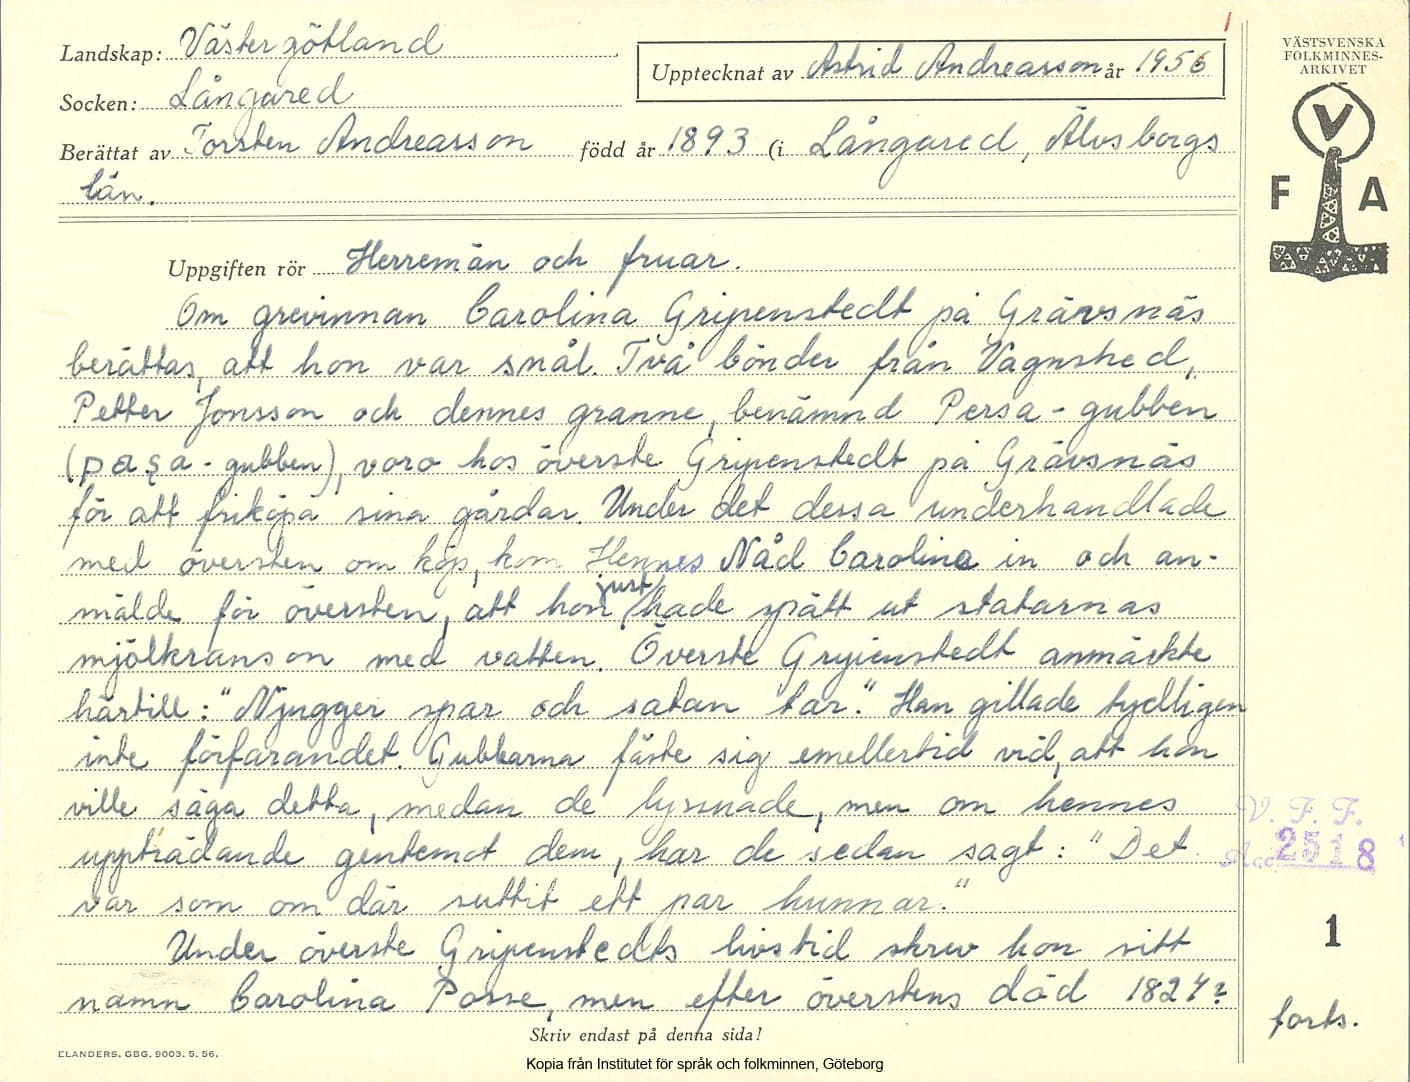 1
Landskap: Västergötland
Socken: Långared
Upptecknat av Astrid Andreasson år 1956
Berättat av Torsten Andreasson född år 1893 (i Långared, Älvsborgs
län.
VÄSTSVENSKA
FOLKMINNES-
ARKIVET
V
F A
Uppgiften rör Herremän och fruar.
Om grevinnan Carolina Gripenstedt på Grävsnäs
berättas, att hon var snål. Två bönder från Vagnshed,
Petter Jonsson och dennes granne, benämnd Persa-gubben
(pæşa-gubben), voro hos överste Gripenstedt på Grävsnäs
för att friköpa sina gårdar. Under det dessa underhandlade
med översten om köp, kom Hennes Nåd Carolina in och an-
mälde för översten, att hon just hade spätt ut statarnas
mjölkranson med vatten. Överste Gripenstedt anmärkte
härtill: "Njugger spar och satan tar." Han gillade tydligen
inte förfarandet. Gubbarna fäste sig emellertid vid, att hon
ville säga detta, medan de lyssnade, men om hennes
uppträdande gentemot dem, har de sedan sagt: "Det
var som om där suttit ett par hunnar."
Under överste Gripenstedts livstid skrev hon sitt
namn Carolina Posse, men efter överstens död 1824?
V. F. F.
Acc. 2518
1
forts.
Skriv endast på denna sida!
ELANDERS. GBG. 9003. 5. 56.
Kopia från Institutet för språk och folkminnen, Göteborg